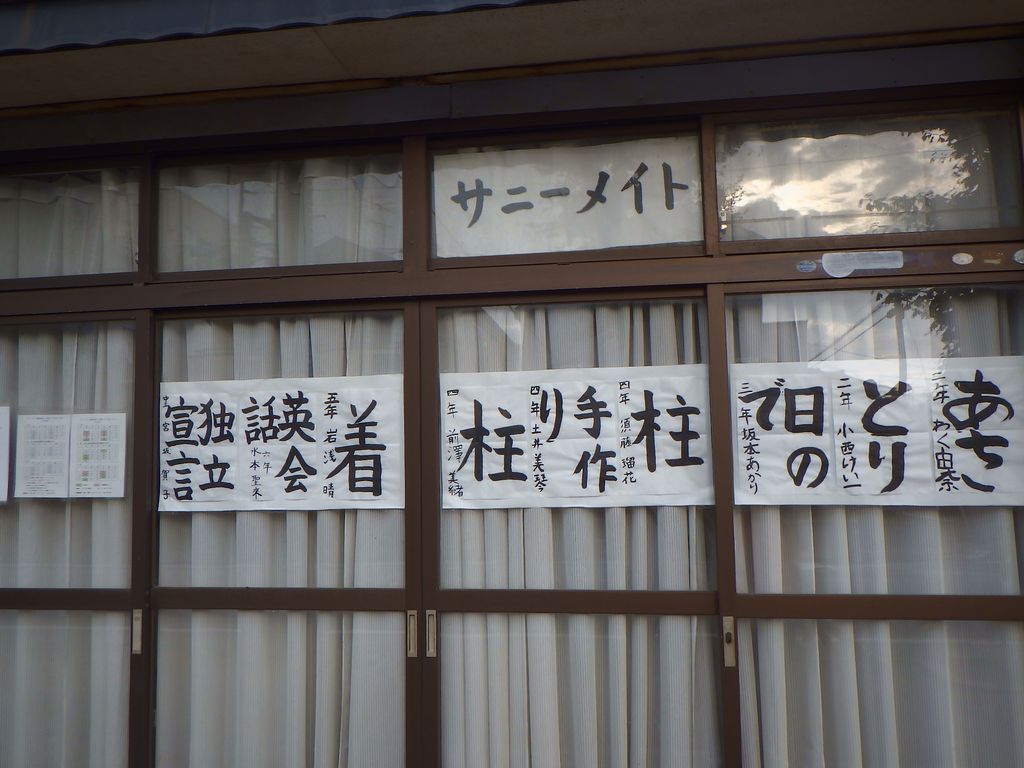 サニーメイト
あさ
二年 わく由奈
とり
二年 小西けい一
日の
で
三年 坂本あかり
柱
四年 須藤 瑠花
手作
り
四年 土井 美琴
柱
四年 前澤 美緒
着
五年 岩浅 晴
英会
話
六年 水本聖来
独立
宣言